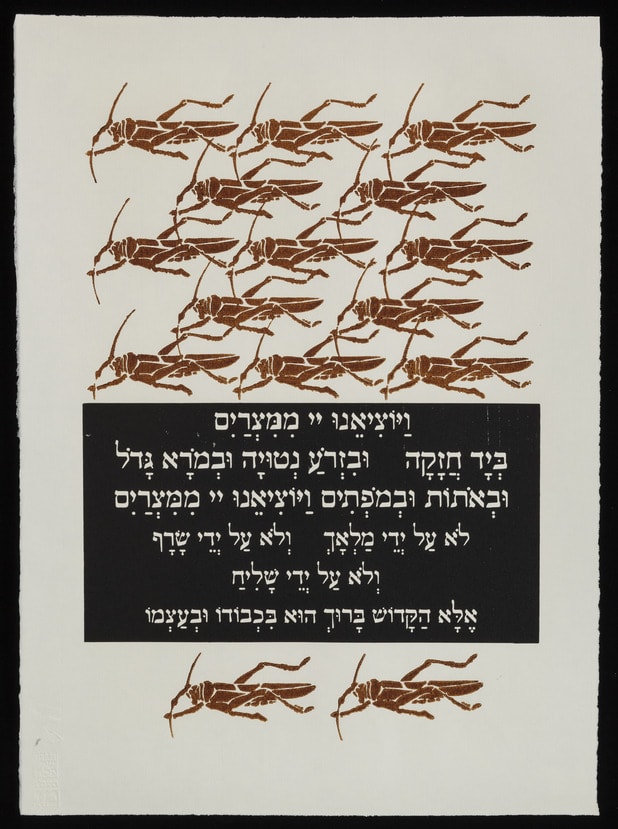 וַיּוֹצִיאֵנוּ יי מִמִּצְרַיִם
בְּיָד חֲזָקָה וּבִזְרֹעַ נְטוּיָה וּבְמֹרָא גָּדֹל
וּבְאֹתוֹת וּבְמֹפְתִים וַיּוֹצִיאֵנוּ יי מִמִּצְרַיִם
לֹא עַל יְדֵי מַלְאָךְ וְלֹא עַל יְדֵי שָׂרָף
וְלֹא עַל יְדֵי שָׁלִיחַ
אֶלָּא הַקָּדוֹשׁ בָּרוּךְ הוּא בִּכְבוֹדוֹ וּבְעַצְמוֹ